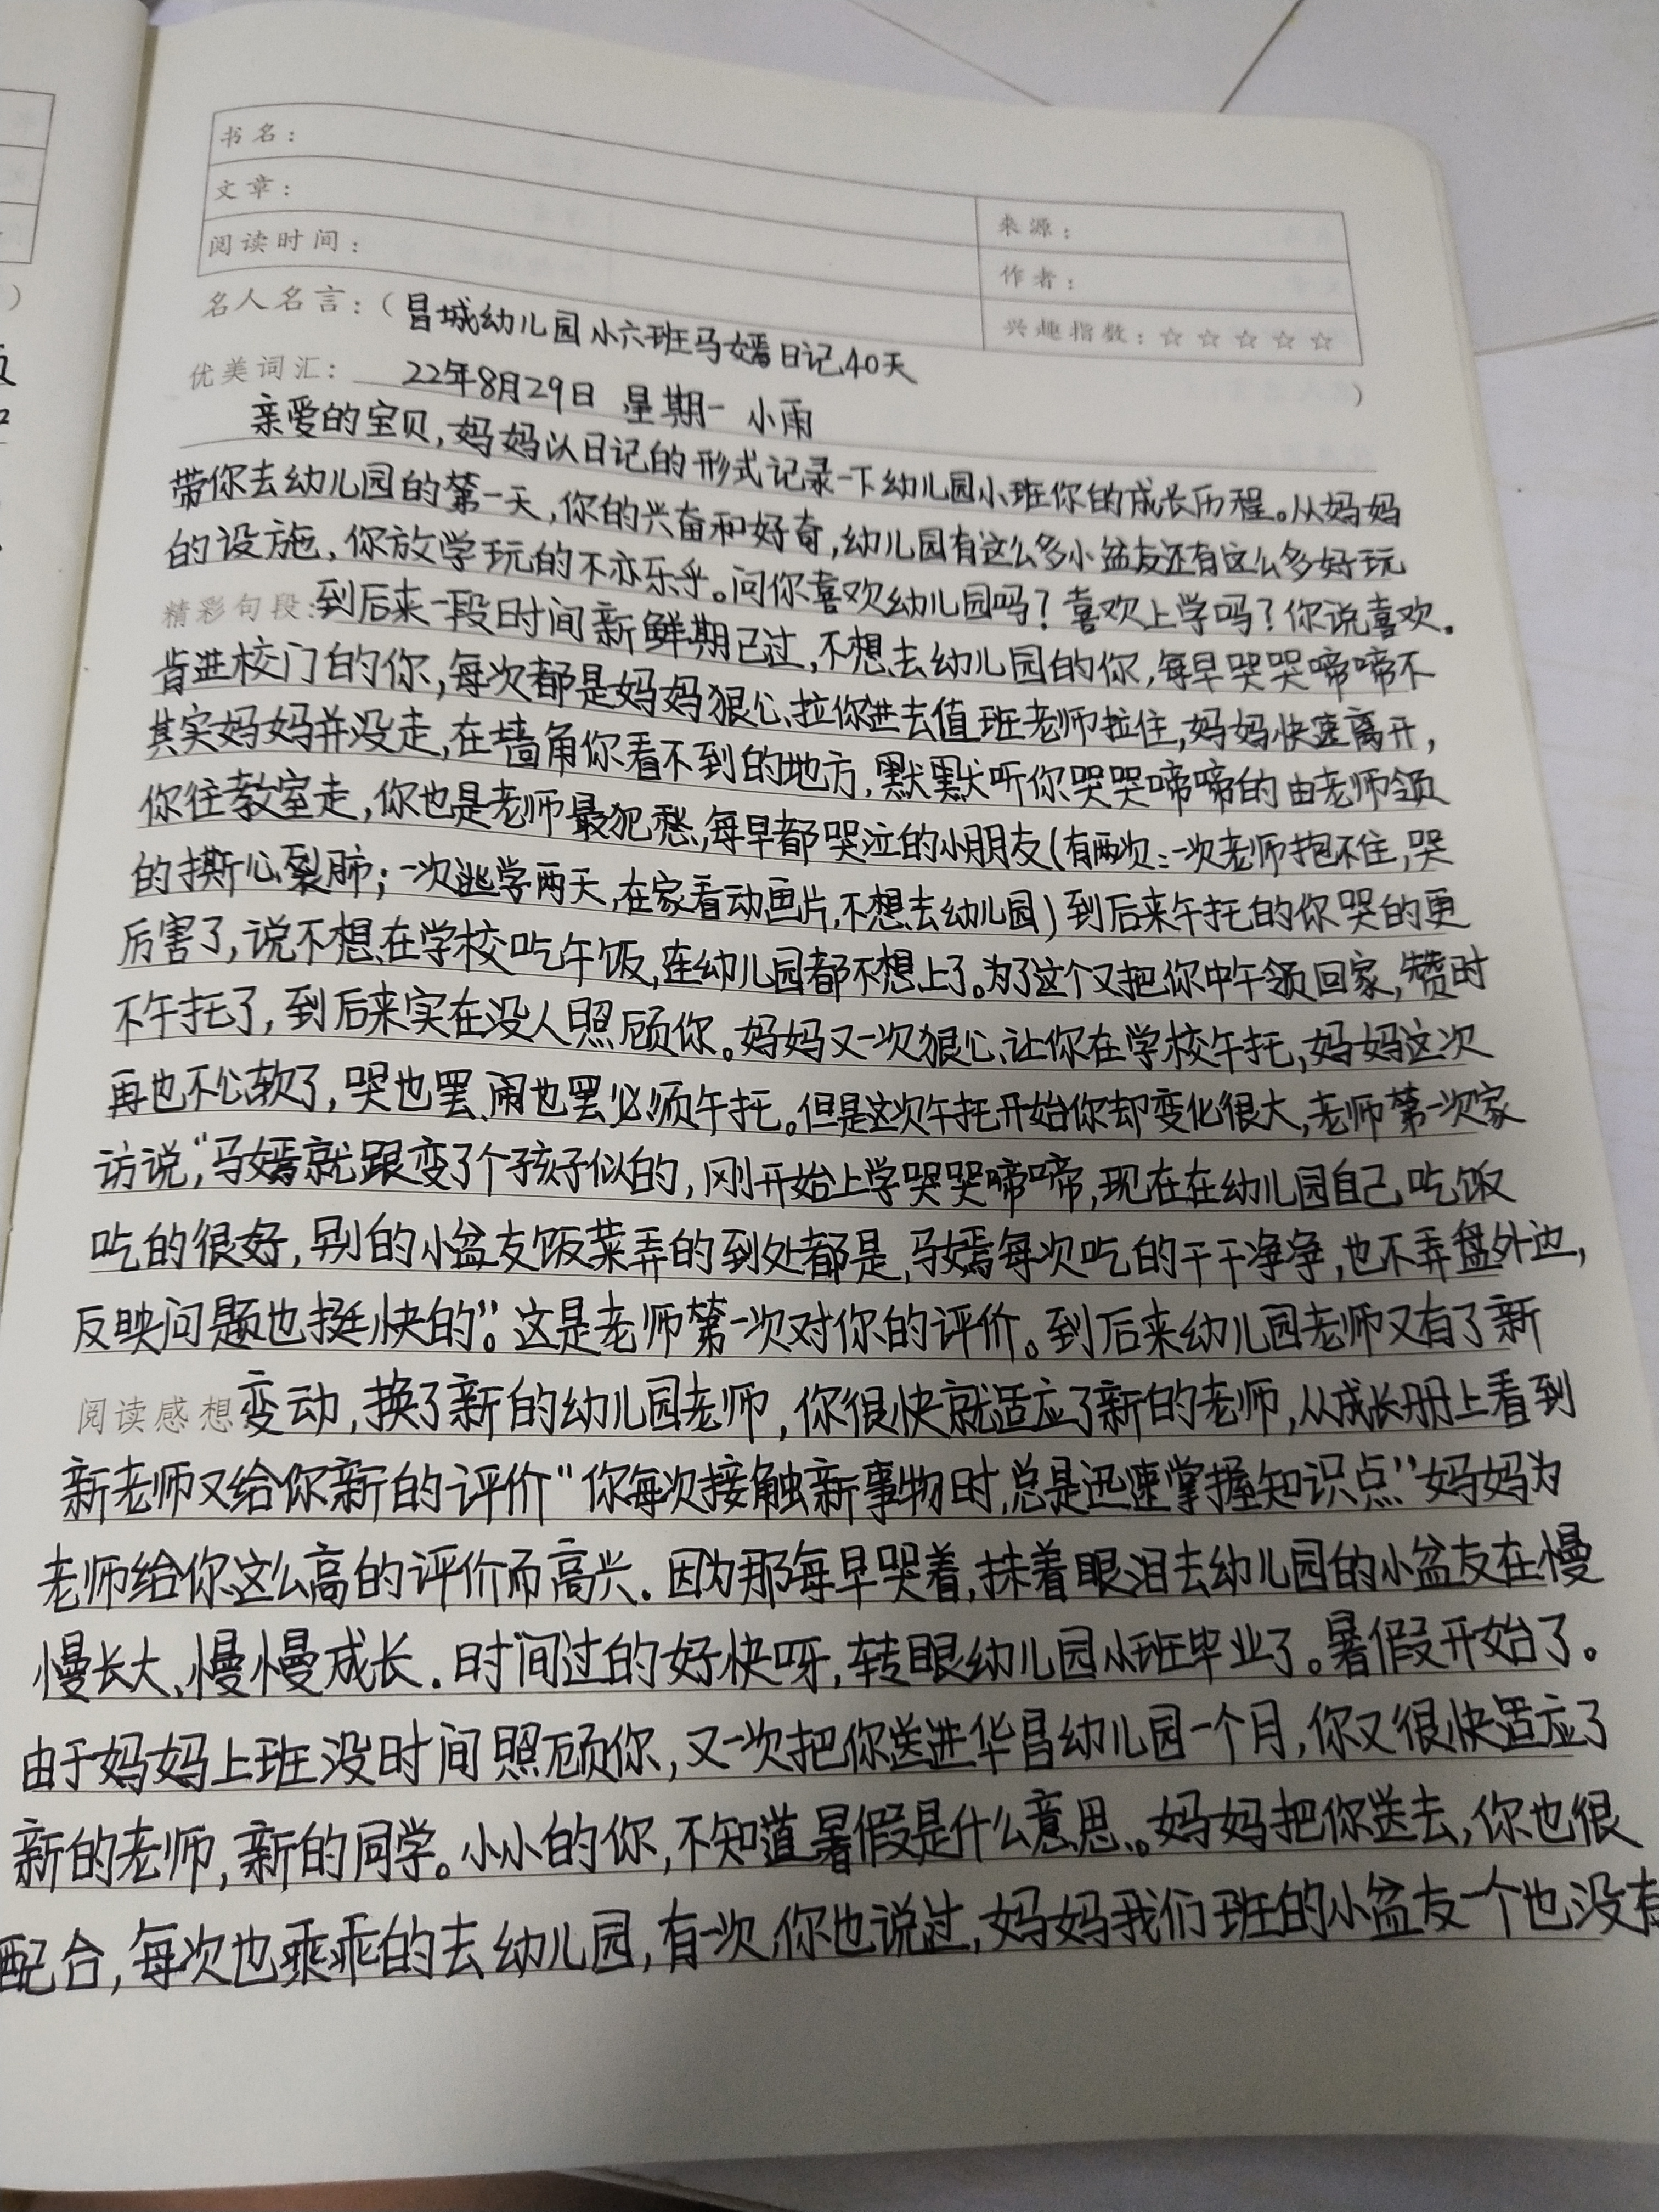 书名：
文章：
来源：
阅读时间：
作者：
兴趣指数：☆☆☆☆☆
名人名言：（昌城幼儿园小六班马嫣日记40天
）
优美词汇： 22年8月29日 星期一 小雨
亲爱的宝贝，妈妈以日记的形式记录一下幼儿园小班你的成长历程。从妈妈
带你去幼儿园的第一天，你的兴奋和好奇，幼儿园有这么多小盆友还有这么多好玩
的设施，你放学玩的不亦乐乎。问你喜欢幼儿园吗？喜欢上学吗？你说喜欢.
精彩句段：到后来一段时间新鲜期已过，不想去幼儿园的你，每早哭哭啼啼不
肯进校门的你，每次都是妈妈狠心拉你进去值班老师拉住，妈妈快速离开，
其实妈妈并没走，在墙角你看不到的地方，默默听你哭哭啼啼的由老师领
你往教室走，你也是老师最犯愁，每早都哭泣的小朋友（有两次：一次老师抱不住，哭
的撕心裂肺；一次逃学两天，在家看动画片，不想去幼儿园）到后来午托的你哭的更
厉害了，说不想在学校吃午饭，连幼儿园都不想上了。为了这个又把你中午领回家，暂时
不午托了，到后来实在没人照顾你。妈妈又一次狠心让你在学校午托，妈妈这次
再也不心软了，哭也罢、闹也罢必须午托。但是这次午托开始你却变化很大，老师第一次家
访说，“马嫣就跟变了个孩子似的，刚开始上学哭哭啼啼，现在在幼儿园自己吃饭
吃的很好，别的小盆友饭菜弄的到处都是，马嫣每次吃的干干净净，也不弄盘外边，
反映问题也挺快的”。这是老师第一次对你的评价。到后来幼儿园老师又有了新
阅读感想 变动，换了新的幼儿园老师，你很快就适应了新的老师，从成长册上看到
新老师又给你新的评价“你每次接触新事物时，总是迅速掌握知识点”妈妈为
老师给你这么高的评价而高兴.因为那每早哭着，抹着眼泪去幼儿园的小盆友在慢
慢长大、慢慢成长.时间过的好快呀，转眼幼儿园小班毕业了。暑假开始了。
由于妈妈上班没时间照顾你，又一次把你送进华昌幼儿园一个月，你又很快适应了
新的老师，新的同学。小小的你，不知道暑假是什么意思。妈妈把你送去，你也很
配合，每次也乖乖的去幼儿园，有一次，你也说过，妈妈我们班的小盆友一个也没有